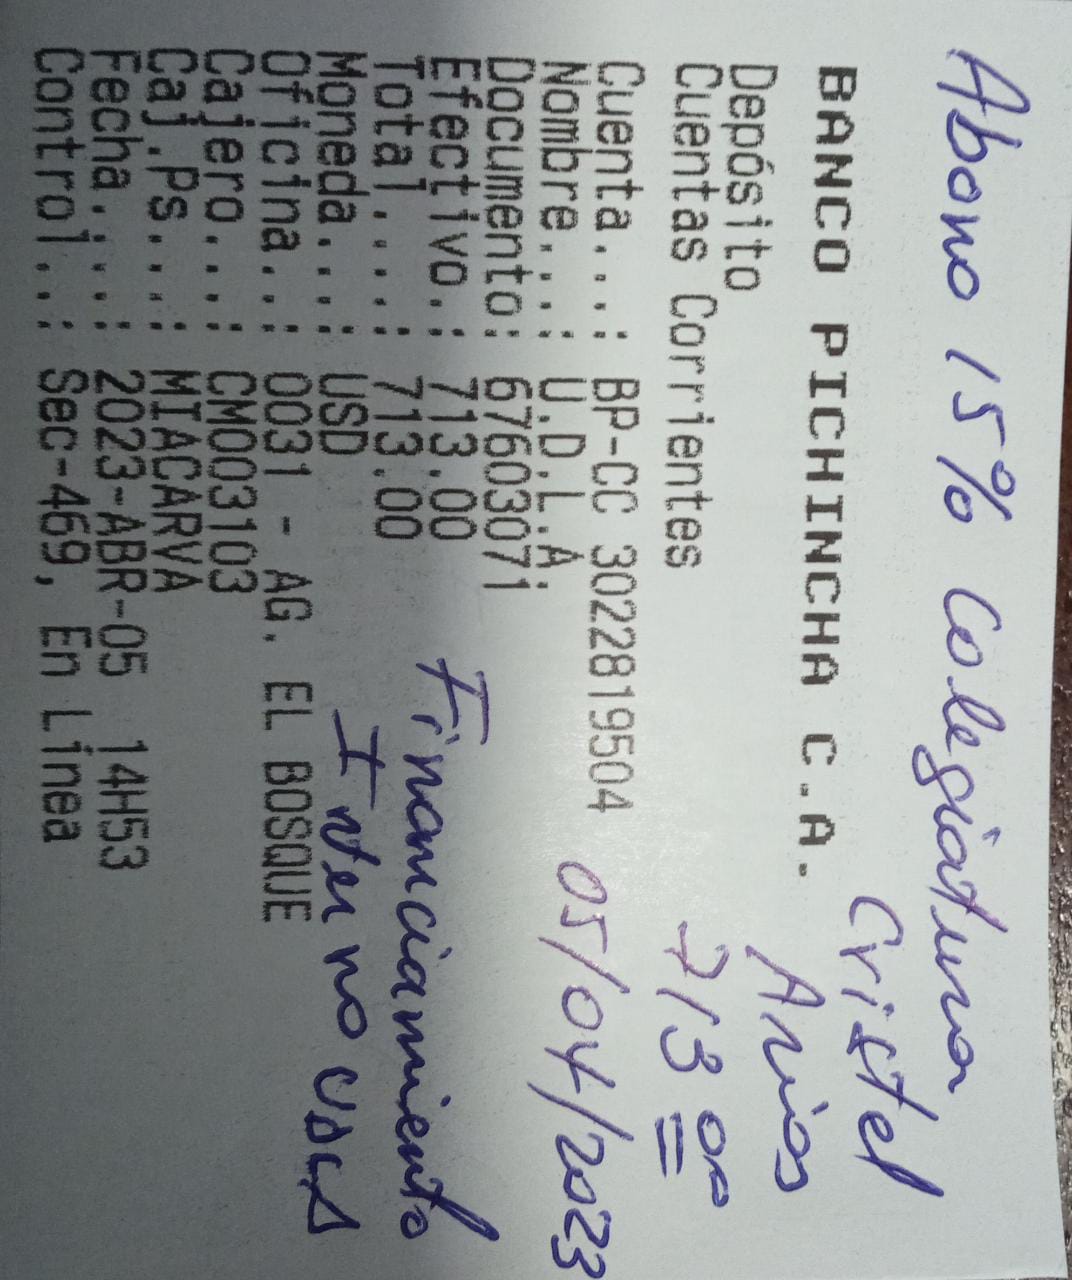 Abono 15% Colegiatura
Cristel
BANCO PICHINCHA C.A.
Arias
Depósito
Cuentas Corrientes
713 00
Cuenta...: BP-CC 3022819504
Nombre...: U.D.L.A.
05/04/2023
Documento: 67603071
Efectivo.: 713.00
Total....: 713.00
Financiamiento
Moneda...: USD
Interno UDLA
Oficina..: 0031 - AG. EL BOSQUE
Cajero...: CM003103
Caj.Ps...: MIACARVA
Fecha....: 2023-ABR-05 14H53
Control..: Sec-469, En Línea